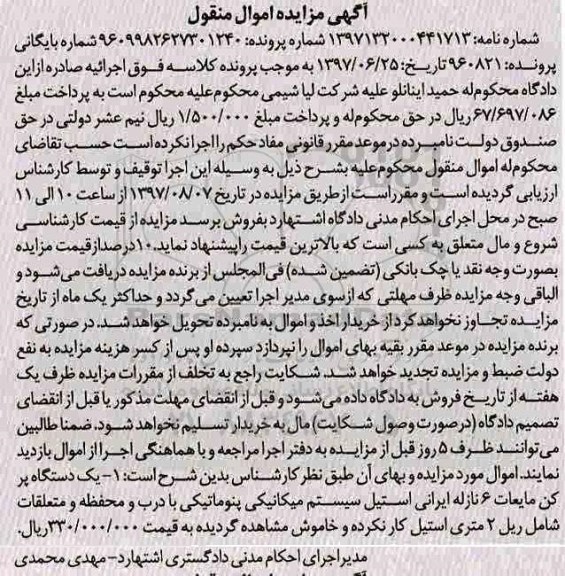 آگهی مزایده اموال منقول
شماره نامه: ۱۳۹۷۱۳۲۰۰۰۴۴۱۷۱۳ شماره پرونده: ۹۶۰۹۹۸۲۶۲۷۳۰۱۲۴۰ شماره بایگانی
پرونده: ۹۶۰۸۲۱ تاریخ: ۱۳۹۷/۰۶/۲۵ به موجب پرونده کلاسه فوق اجرائیه صادره ازاین
دادگاه محکوم‌له حمید اینانلو علیه شرکت لیا شیمی محکوم‌علیه محکوم است به پرداخت مبلغ
۶۷/۶۹۷/۰۸۶ ریال در حق محکوم‌له و پرداخت مبلغ ۱/۵۰۰/۰۰۰ ریال نیم عشر دولتی در حق
صندوق دولت نامبرده درموعد مقرر قانونی مفاد حکم را اجرا نکرده است حسب تقاضای
محکوم‌له اموال منقول محکوم‌علیه بشرح ذیل به وسیله این اجرا توقیف و توسط کارشناس
ارزیابی گردیده است و مقرراست ازطریق مزایده در تاریخ ۱۳۹۷/۰۸/۰۷ از ساعت ۱۰ الی ۱۱
صبح در محل اجرای احکام مدنی دادگاه اشتهارد بفروش برسد مزایده از قیمت کارشناسی
شروع و مال متعلق به کسی است که بالاترین قیمت را پیشنهاد نماید.۱۰درصدازقیمت مزایده
بصورت وجه نقد یا چک بانکی (تضمین شده) فی‌المجلس از برنده مزایده دریافت می‌شود و
الباقی وجه مزایده ظرف مهلتی که ازسوی مدیر اجرا تعیین می‌گردد و حداکثر یک ماه از تاریخ
مزایده تجاوز نخواهد کرد از خریدار اخذ و اموال به نامبرده تحویل خواهد شد. در صورتی که
برنده مزایده در موعد مقرر بقیه بهای اموال را نپردازد سپرده او پس از کسر هزینه مزایده به نفع
دولت ضبط و مزایده تجدید خواهد شد. شکایت راجع به تخلف از مقررات مزایده ظرف یک
هفته از تاریخ فروش به دادگاه داده می‌شود و قبل از انقضای مهلت مذکور یا قبل از انقضای
تصمیم دادگاه (درصورت وصول شکایت) مال به خریدار تسلیم نخواهد شود. ضمنا طالبین
می‌توانند ظرف ۵ روز قبل از مزایده به دفتر اجرا مراجعه و با هماهنگی اجرا از اموال بازدید
نمایند. اموال مورد مزایده و بهای آن طبق نظر کارشناس بدین شرح است: ۱- یک دستگاه پر
کن مایعات ۶ نازله ایرانی استیل سیستم میکانیکی پنوماتیکی با درب و محفظه و متعلقات
شامل ریل ۲ متری استیل کار نکرده و خاموش مشاهده گردیده به قیمت ۳۳۰/۰۰۰/۰۰۰ریال.
مدیراجرای احکام مدنی دادگستری اشتهارد- مهدی محمدی